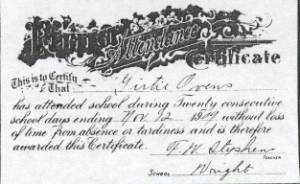 Punctual
Attendance
Certificate
This is to Certify
That Girtie Owens
has attended school during Twenty consecutive
school days ending Nov. 12 1909 without loss
of time from absence or tardiness and is therefore
awarded this Certificate.
Teacher
School Wright